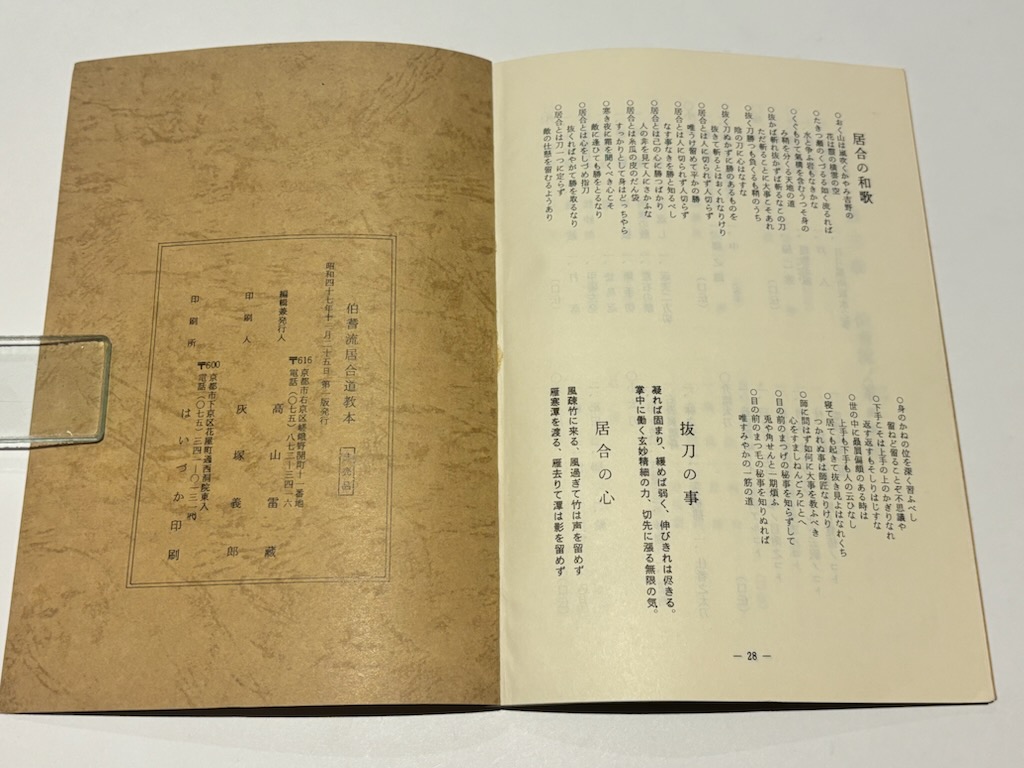 居合の和歌
○おく山は風吹くかやみ吉野の
花は雲の積雲の空
○たきつ瀬のくづるる如く流るれば
水と争ふ岩もなきかな
○くぐもりて気構を含むうつそ身の
み鞘を分くる天地の道
○抜かば斬れ抜かずば斬るなこの刀
ただ斬ることに大事こそあれ
○抜く刀勝つも負くるも鞘のうち
陰の刀に心はなすな
○抜く刀ぬかずに勝のあるものを
抜きて斬るとはおくれなりけり
○居合とは人に切られず人切らず
唯うけ留めて平かの勝
○居合とは人に切られず人切らず
なす事なきを勝と知るべし
○居合とは己の心に勝つばかり
人の非を見て人にさかふな
○居合とは糸瓜の皮のだん袋
すっかりとして身はどっちやら
○寒き夜に霜を聞くべき心こそ
敵に逢ひても勝をとるなり
○居合とは心をしづめ指刀
抜くればやがて勝を取るなり
○居合とは刀一つに定らず
敵の仕懸を留むるようあり
○身のかねの位を深く習ふべし
留ねど留ることぞ不思議や
○下手こそは上手の上のかぎりなれ
返す返すもそしりはしすな
○世の中に贔屓偏頗のある時は
上手も下手も人の云ひなし
○寝て居ても起きて抜き見よはなれくち
つかれぬ事は師匠なりけり
○師に問はず如何に大事を教ふべき
心をすましねんごろにとへ
○目の前のまつげの秘事を知らずして
兎や角せんと一期煩ふ
○目の前のまつ毛の秘事を知りぬれば
唯すみやかの一筋の道
抜刀の事
凝れば固まり、緩めば弱く、伸びきれは侭きる。
掌中に働く玄妙精細の力、切先に漲る無限の気。
居合の心
風疎竹に来る、風過ぎて竹は声を留めず
雁寒潭を渡る、雁去りて潭は影を留めず
— 28 —
伯耆流居合道教本
昭和四十七年十二月二十五日 第一版発行
編輯兼発行人
〒616 京都市右京区嵯峨野開町十一番地
電話(〇七五)八七二−三四一六
高山雷蔵
印刷人
灰塚義郎
印刷所
〒600 京都市下京区花屋町通西洞院東入
電話(〇七五)三四一−〇三一
はいづか印刷